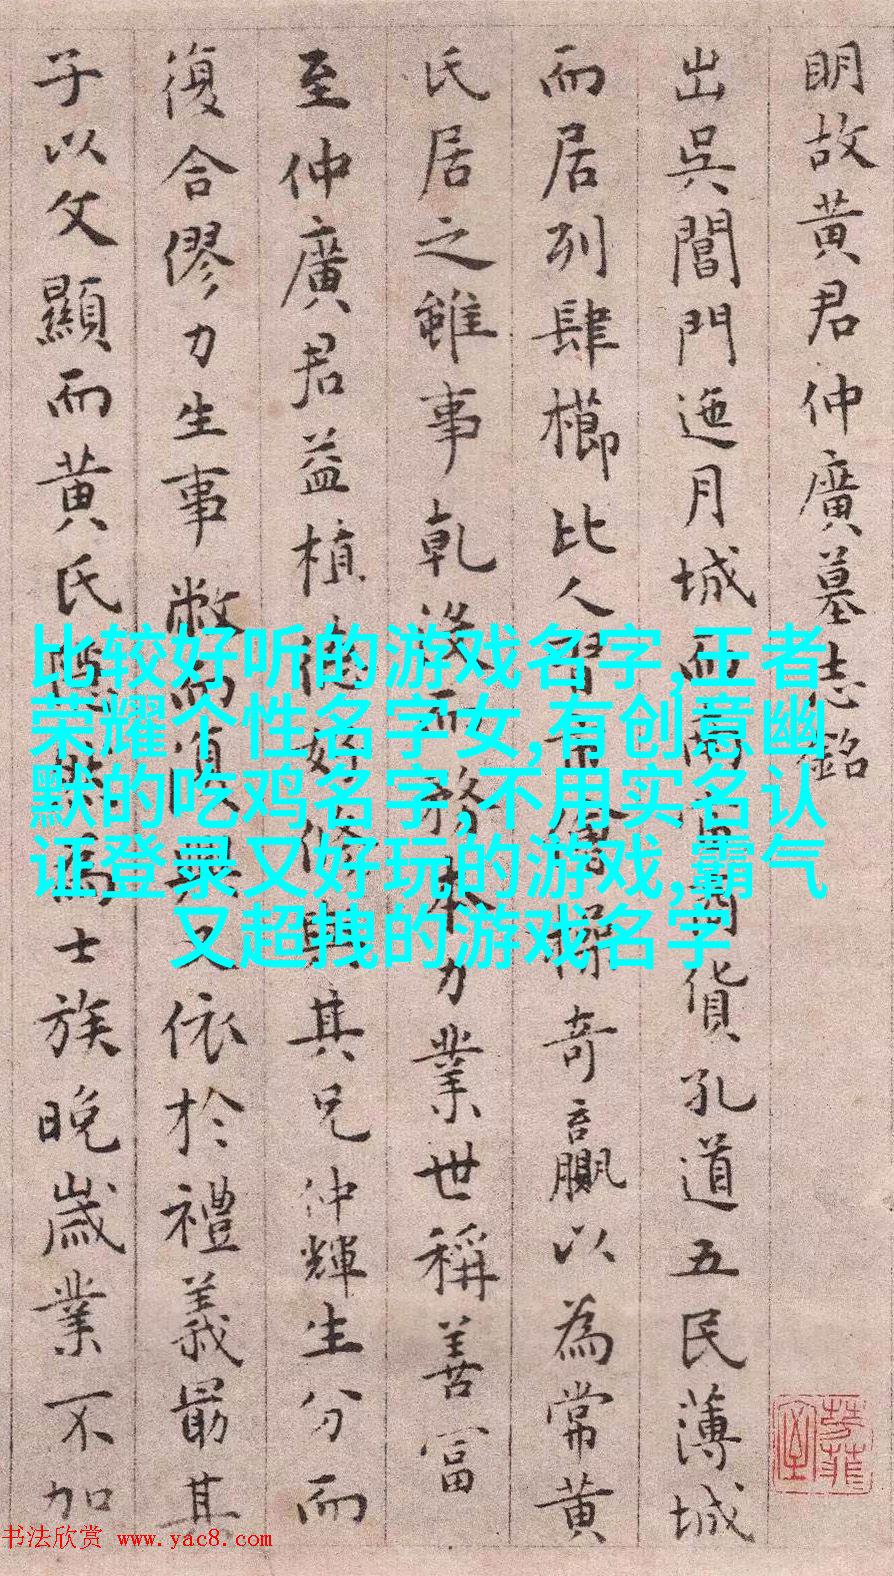 明故黄君仲廣墓志銘
出吳閶門迤月城而
貨孔道五民薄城
而居列肆櫛比人
操奇贏以為常黄
氏居之雖事乾没而務本力業世稱善富
至仲廣君益植
其兄仲輝生分而
復合僇力生事
依於禮義最其
子以文顯而黄氏
士族晚歲業不加
比较好听的游戏名字,王者
荣耀个性名字女,有创意幽
默的吃鸡名字,不用实名认
证登录又好玩的游戏,霸气
又超拽的游戏名字
书法欣赏 www.yac8.com